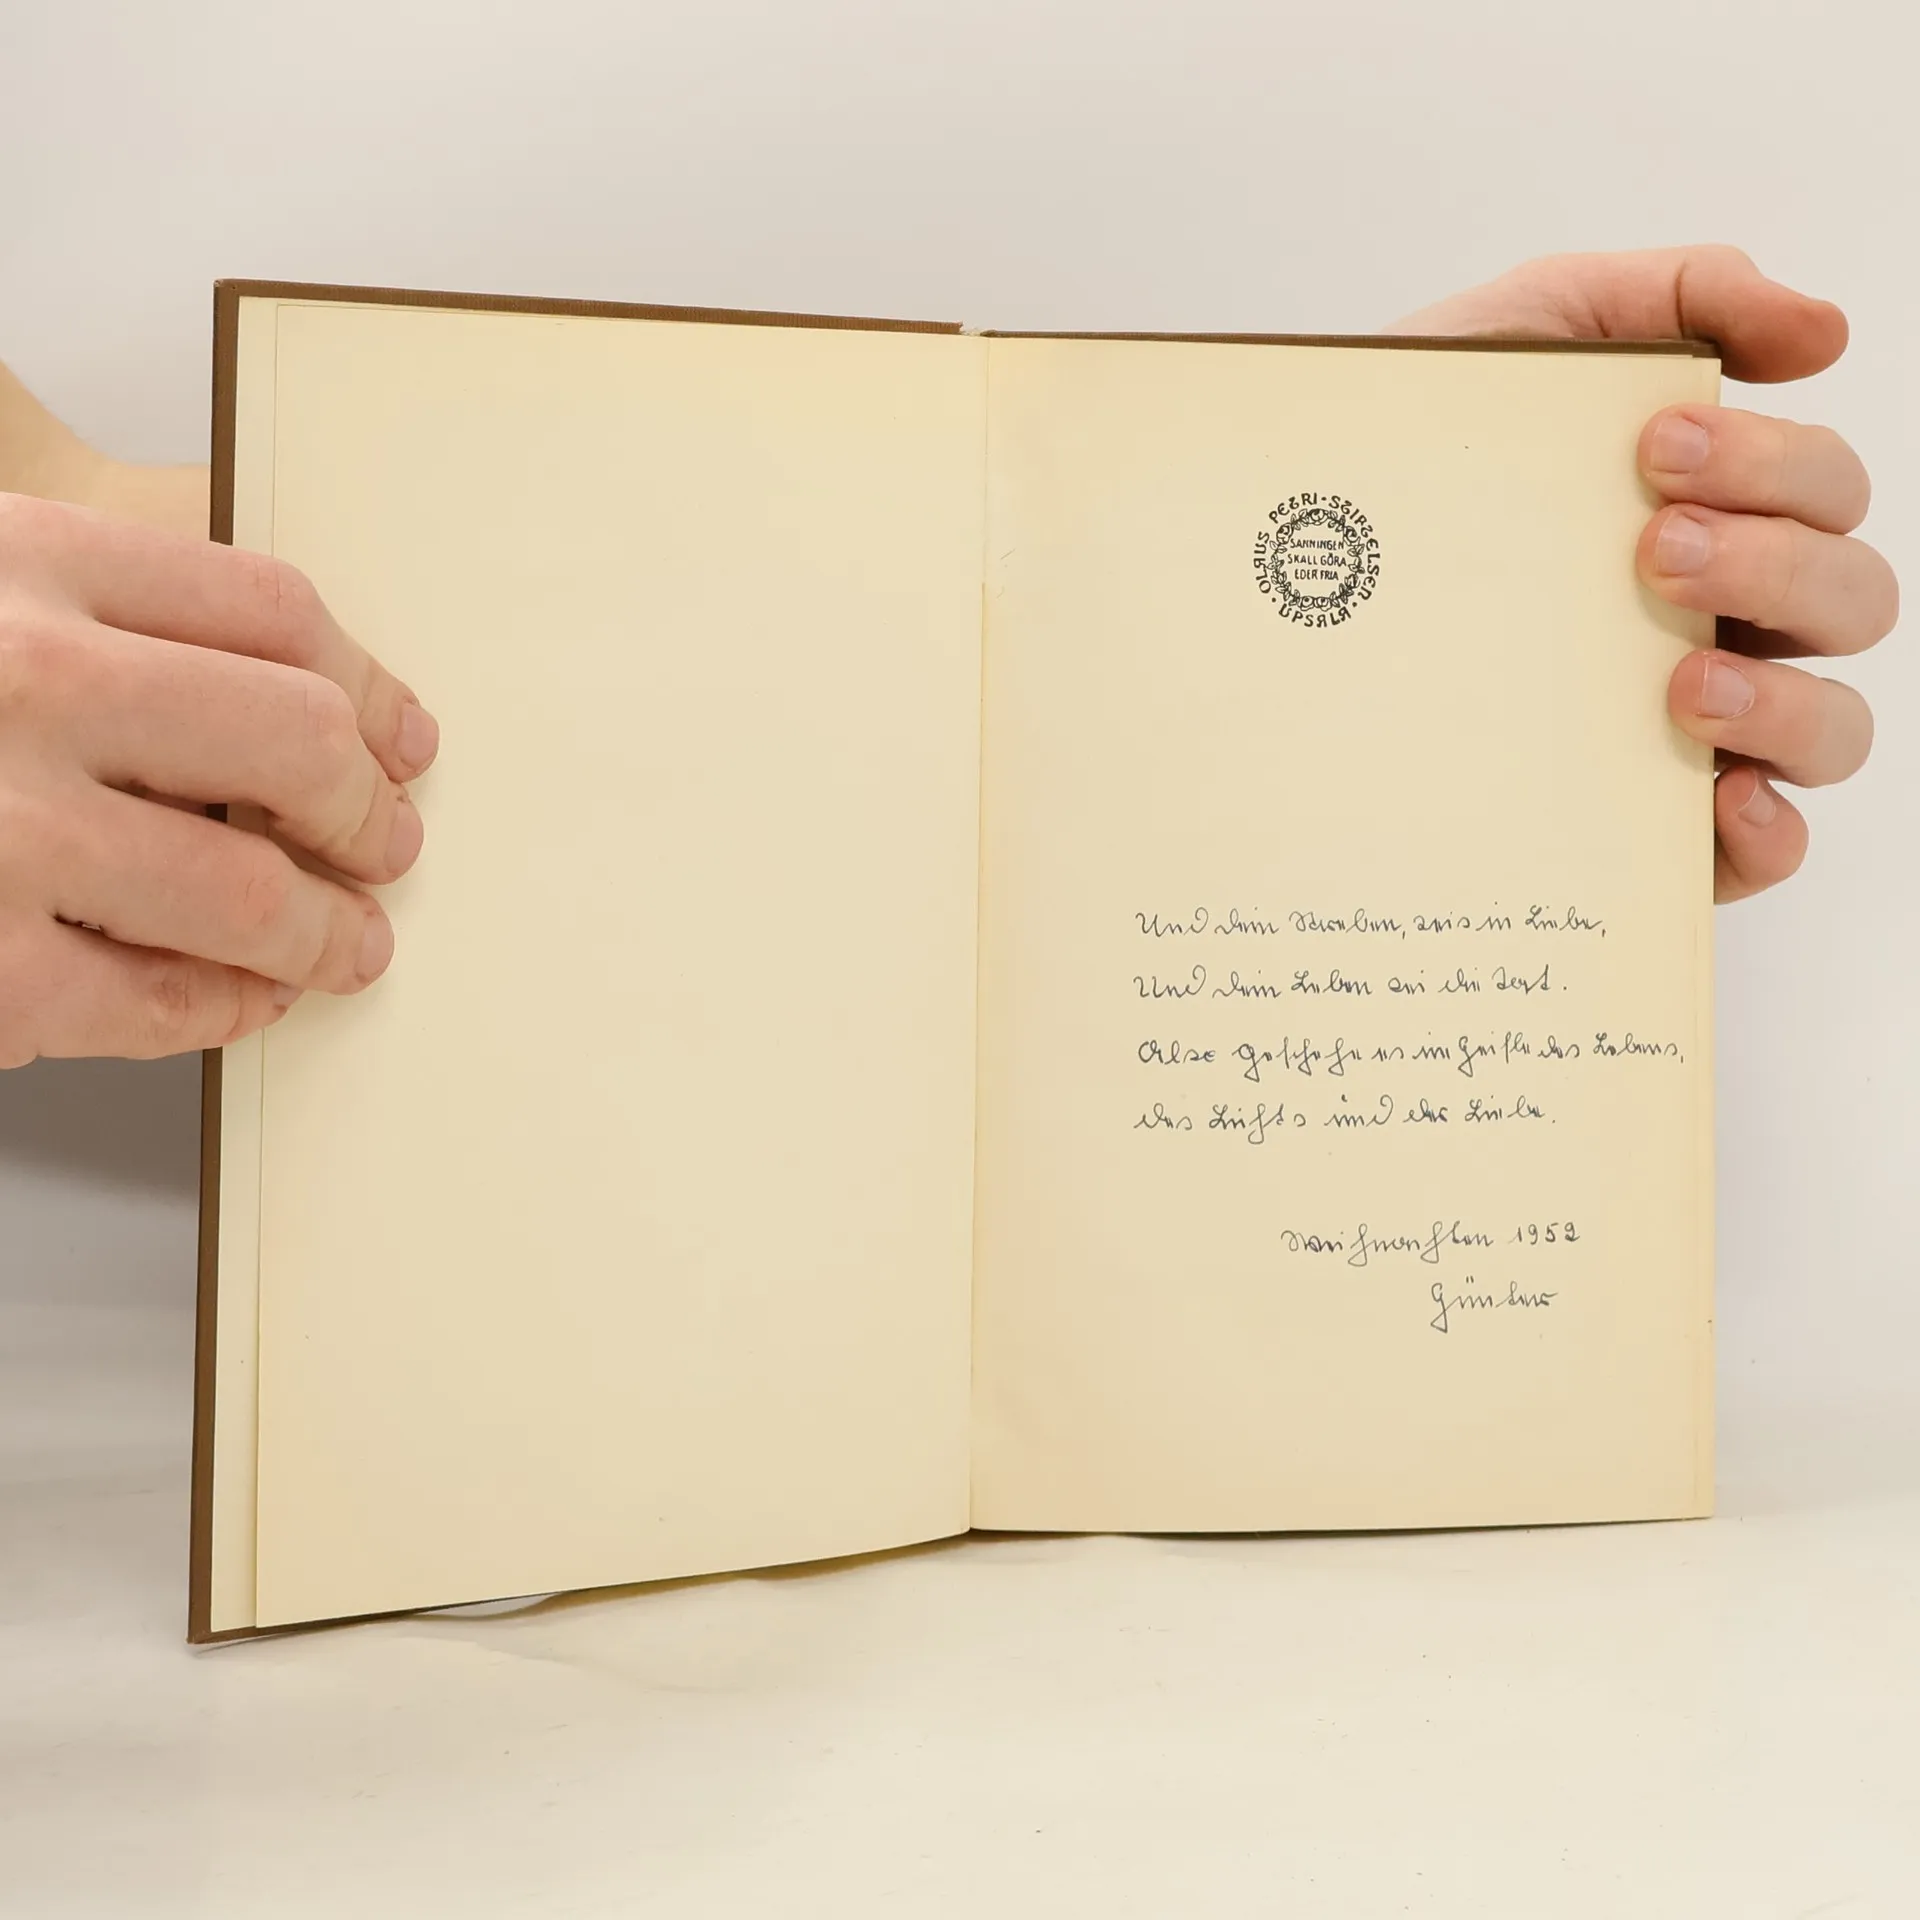 OLAUS PETRI · STIFTELSEN · UPSALA ·
SANNINGEN
SKALL GÖRA
EDER FRIA
Und dein Streben, seis in Liebe,
Und dein Leben sei die Tat.
Also geschehe es im Geiste des Lebens,
des Lichts und der Liebe.
Weihnachten 1952
Günter